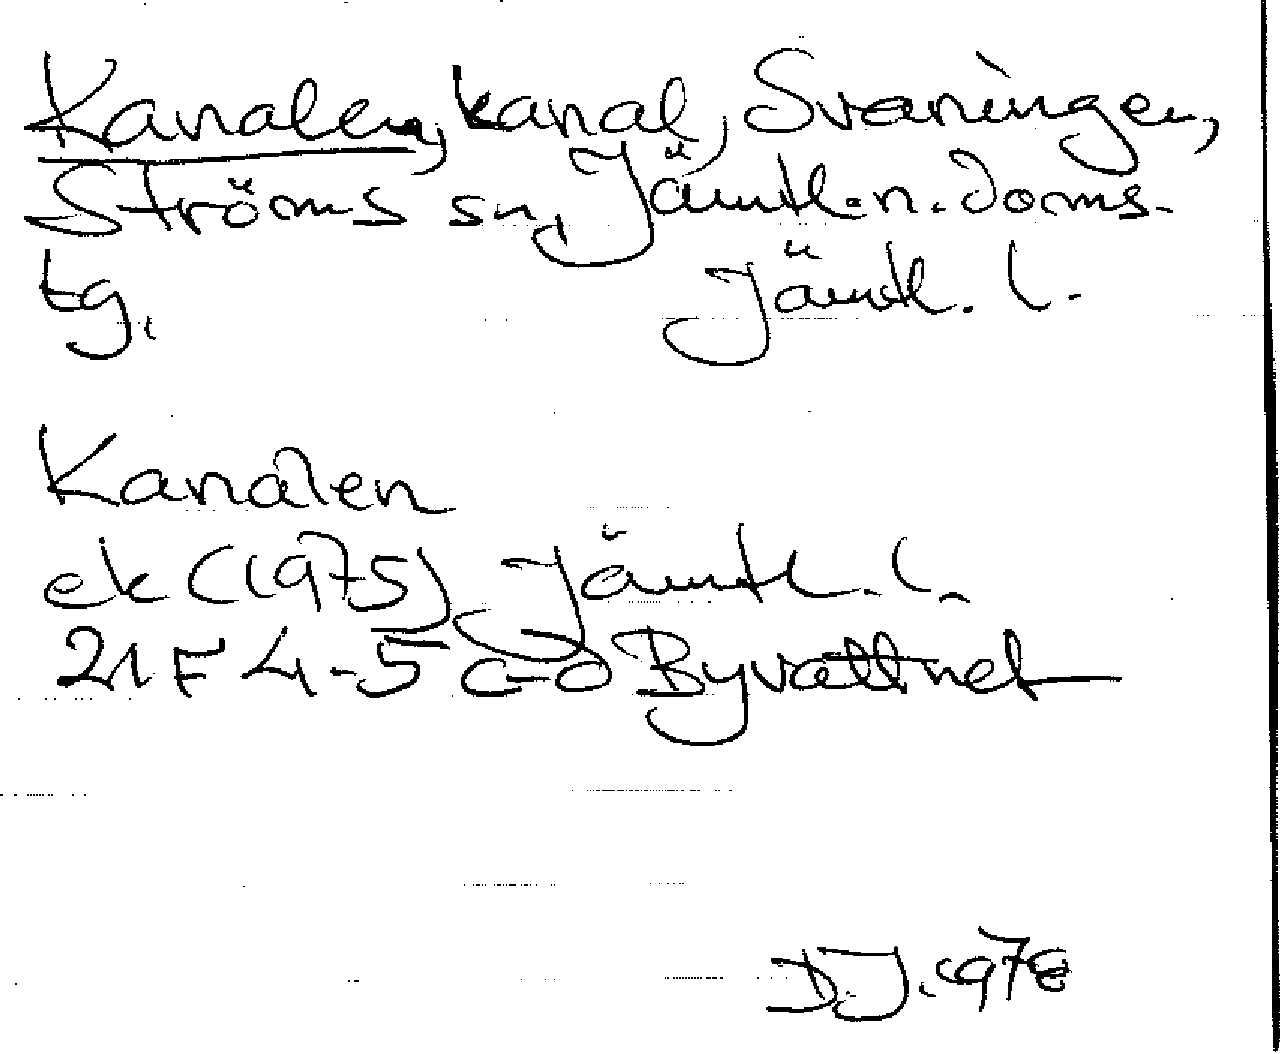 Kanalen, kanal, Svaningen,
Ströms sn, Jämtl. n. doms-
tg. Jämtl. l.
Kanalen
ek (1975) Jämtl. l.
21 F 4-5 c-d Byvattnet
D.J. 1978